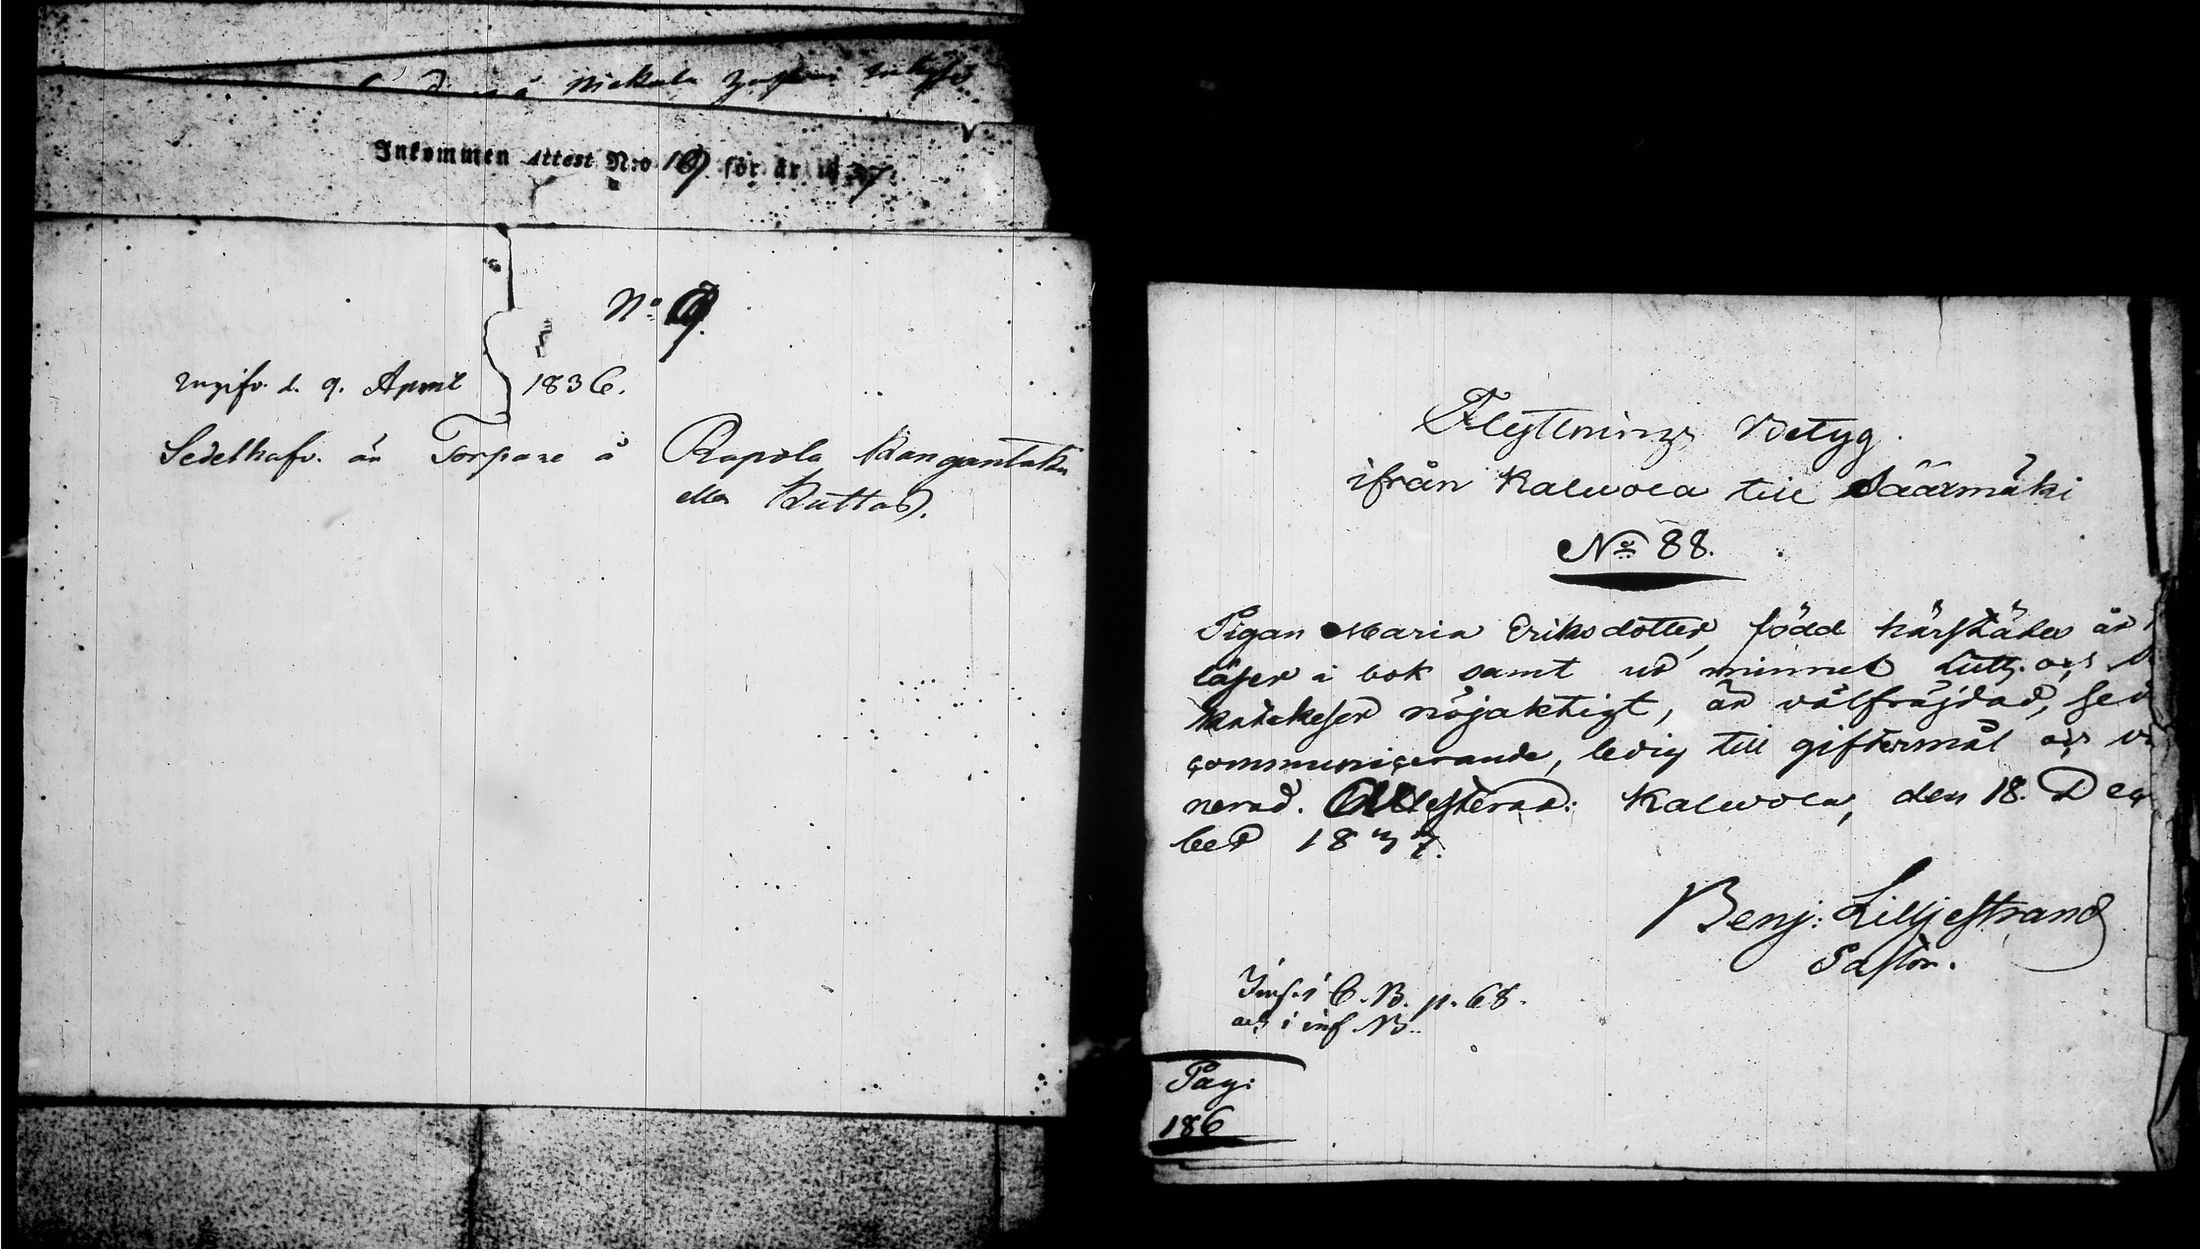 å Nickula
Inkommen Attest N:o 19 för år 1837.
No 9.
uppgifv. d. 9. April 1836.
Sedelhafv. är Torpare å Rapola Kangantaka
eller Kuttas.
Flyttnings Betyg.
ifrån Kalwola till Säärmäki
No 88.
Pigan Maria Eriksdotter, född härstädes år
läser i bok samt ur minnet Luth. och
katekeser nöjaktigt, är välfräjdad,
communicerande, ledig till giftermål och
nerad. Attesterar: Kalwola, den 18. Dec
ber 1837.
Benj: Lilljestrand
Pastor.
Inf. i C. B. p. 68.
och i inf. B.
Pag:
186